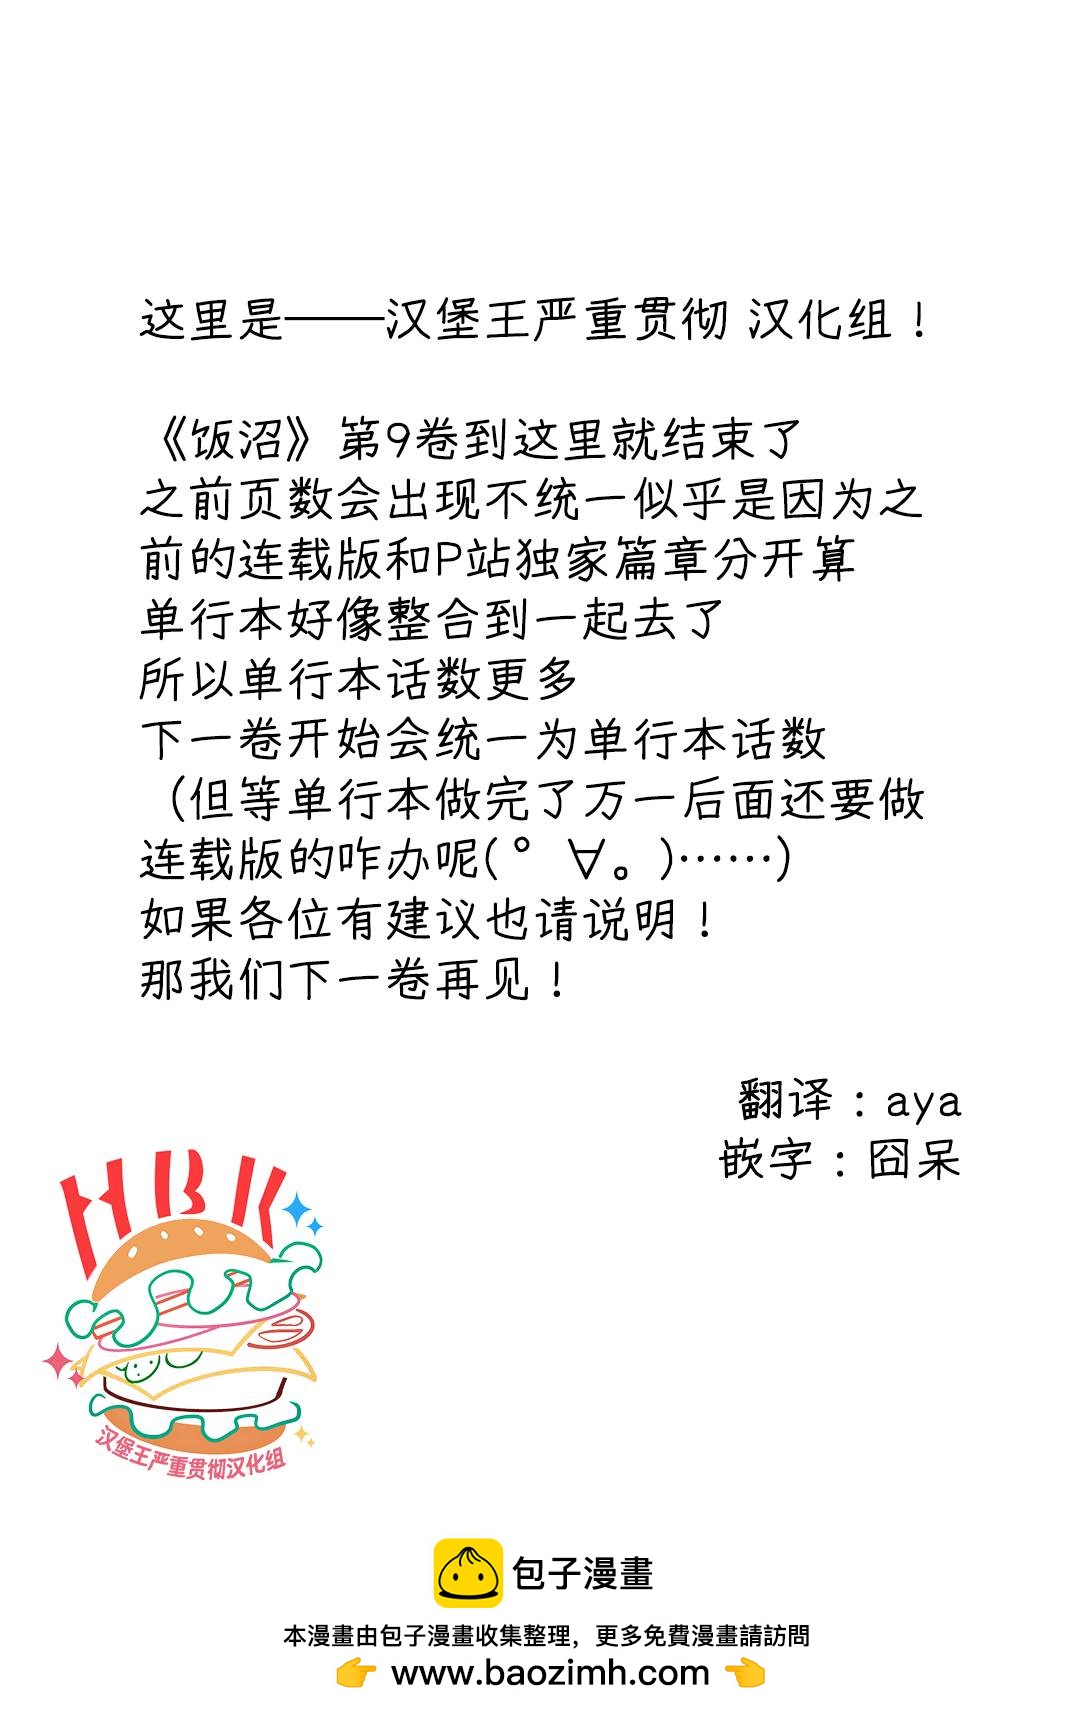 这里是——汉堡王严重贯彻 汉化组！
《饭沼》第9卷到这里就结束了
之前页数会出现不统一似乎是因为之
前的连载版和P站独家篇章分开算
单行本好像整合到一起去了
所以单行本话数更多
下一卷开始会统一为单行本话数
（但等单行本做完了万一后面还要做
连载版的咋办呢(゜∀。)……)
如果各位有建议也请说明！
那我们下一卷再见！
翻译：aya
嵌字：囧呆
HBK
汉堡王严重贯彻汉化组
包子漫畫
本漫畫由包子漫畫收集整理，更多免費漫畫請訪問
👉 www.baozimh.com 👈